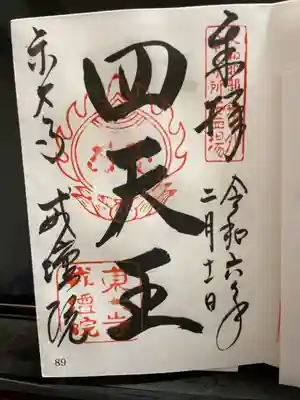 奉拝
令和六年
二月十一日
四天王
東大寺
戒壇院
東大寺
戒壇院
89